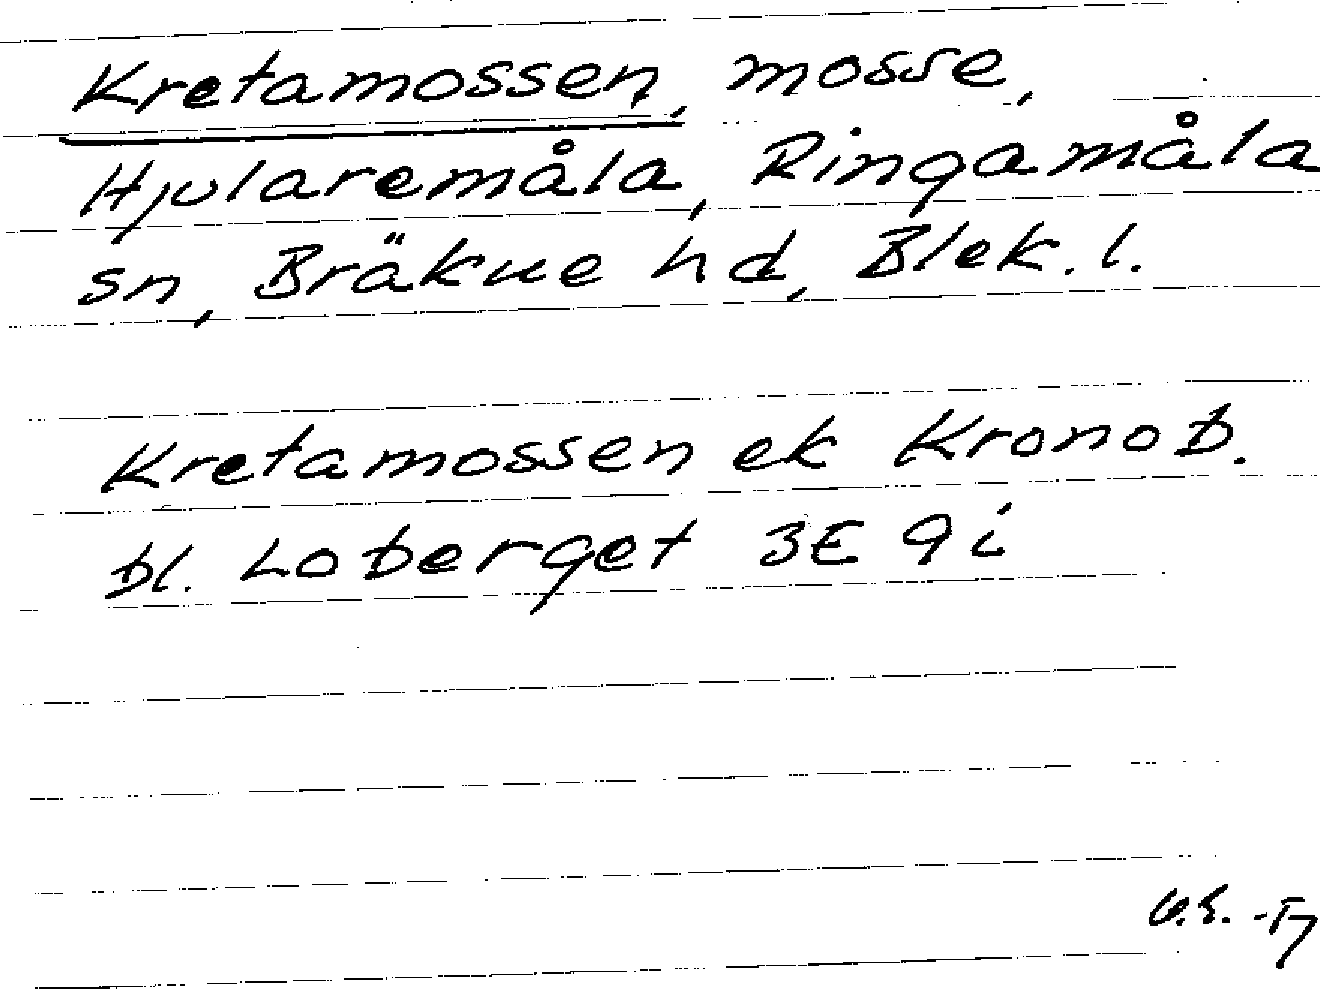 Kretamossen, mosse,
Hjularemåla, Ringamåla
sn, Bräkne hd, Blek. l.
Kretamossen ek Kronob.
bl. Loberget 3E 9i